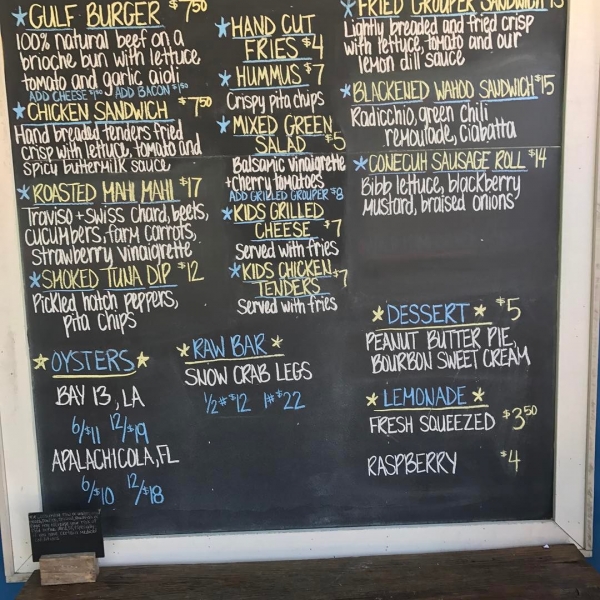 GULF BURGER $7.50
100% natural beef on a
brioche bun with lettuce
tomato and garlic aioli
ADD CHEESE ADD BACON
CHICKEN SANDWICH $7.50
Hand breaded tenders fried
crisp with lettuce, tomato and
spicy buttermilk sauce
ROASTED MAHI MAHI $17
Traviso + swiss chard, beets,
cucumbers, farm carrots,
strawberry vinaigrette
SMOKED TUNA DIP $12
Pickled hatch peppers,
pita chips
OYSTERS
BAY 13, LA
6/$11 12/$19
APALACHICOLA, FL
6/$10 12/$18
HAND CUT
FRIES $4
HUMMUS $7
Crispy pita chips
MIXED GREEN
SALAD $5
Balsamic vinaigrette
+ cherry tomatoes
ADD GRILLED GROUPER $8
KIDS GRILLED
CHEESE $7
served with fries
KIDS CHICKEN
TENDERS $7
Served with fries
RAW BAR
SNOW CRAB LEGS
1/2# $12 1# $22
FRIED GROUPER SANDWICH
Lightly breaded and fried crisp
with lettuce, tomato and our
lemon dill sauce
BLACKENED WAHOO SANDWICH $15
Radicchio, green chili
remoulade, Ciabatta
CONECUH SAUSAGE ROLL $14
Bibb lettuce, blackberry
mustard, braised onions
DESSERT $5
PEANUT BUTTER PIE,
BOURBON SWEET CREAM
LEMONADE
FRESH SQUEEZED $3.50
RASPBERRY $4